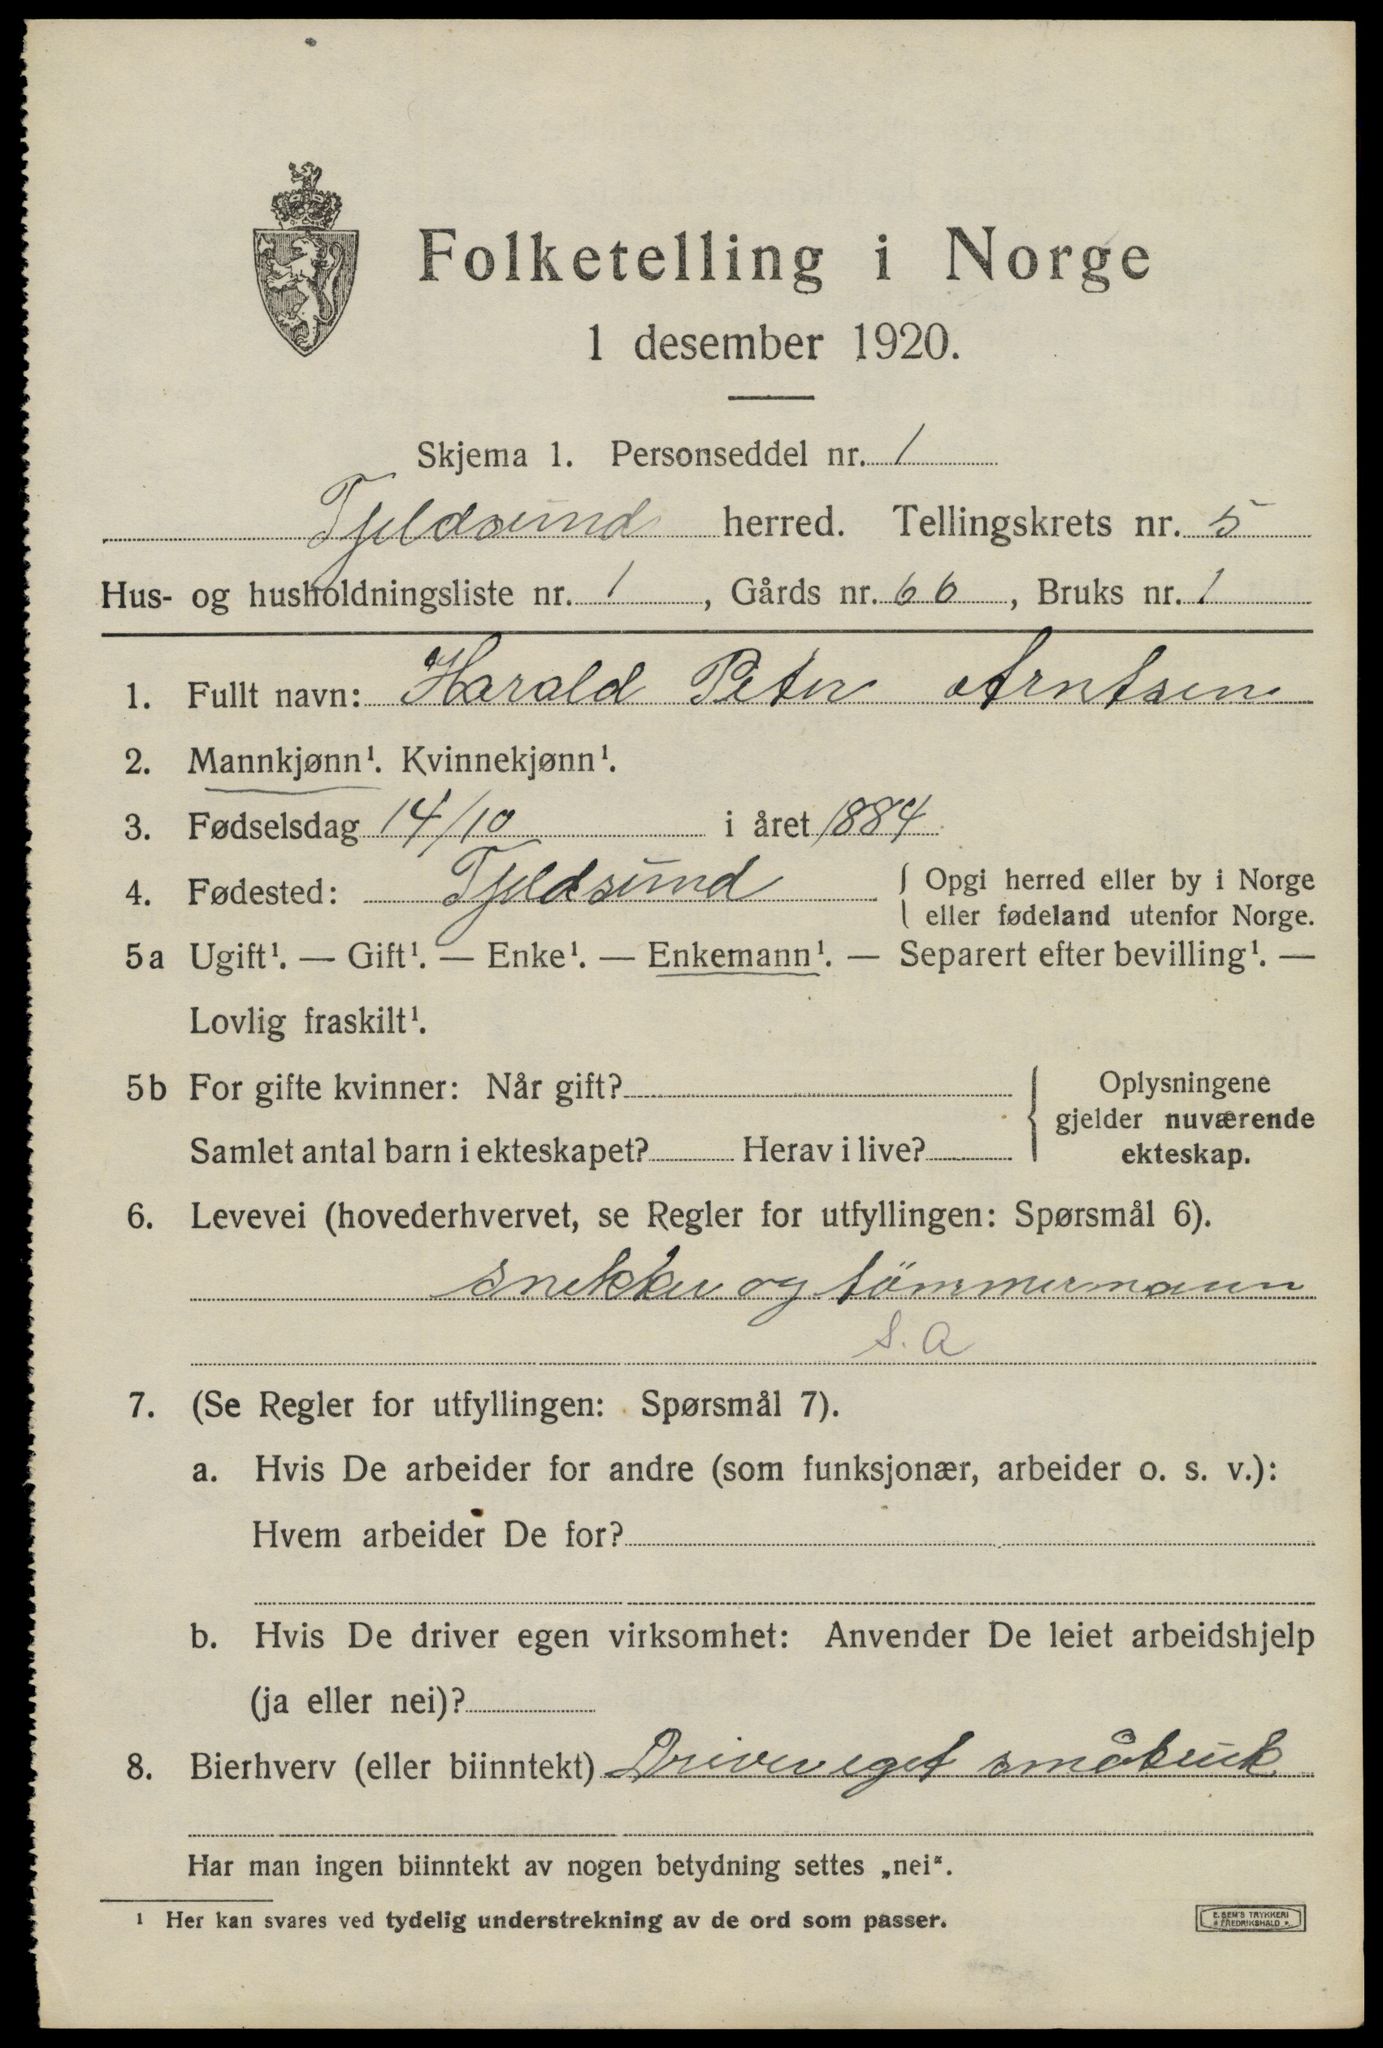 Folketelling i Norge
1 desember 1920.
Skjema 1. Personseddel nr. 1
Tjeldsund herred. Tellingskrets nr. 5
Hus- og husholdningsliste nr. 1, Gårds nr. 66, Bruks nr. 1
1. Fullt navn: Harald Peter Arntsen
2. Mannkjønn¹. Kvinnekjønn¹.
3. Fødselsdag 14/10 i året 1884
4. Fødested: Tjeldsund { Opgi herred eller by i Norge
eller fødeland utenfor Norge.
5a Ugift¹. — Gift¹. — Enke¹. — Enkemann¹. — Separert efter bevilling¹. —
Lovlig fraskilt¹.
5b For gifte kvinner: Når gift? { Oplysningene
gjelder nuværende
Samlet antal barn i ekteskapet? Herav i live? ekteskap.
6. Levevei (hovederhvervet, se Regler for utfyllingen: Spørsmål 6).
snekker og tömmermann
S. A
7. (Se Regler for utfyllingen: Spørsmål 7).
a. Hvis De arbeider for andre (som funksjonær, arbeider o. s. v.):
Hvem arbeider De for?
b. Hvis De driver egen virksomhet: Anvender De leiet arbeidshjelp
(ja eller nei)?
8. Bierhverv (eller biinntekt) Driver eget småbruk
Har man ingen biinntekt av nogen betydning settes „nei".
¹ Her kan svares ved tydelig understrekning av de ord som passer.
E. SEM'S TRYKKERI
* FREDRIKSHALD *